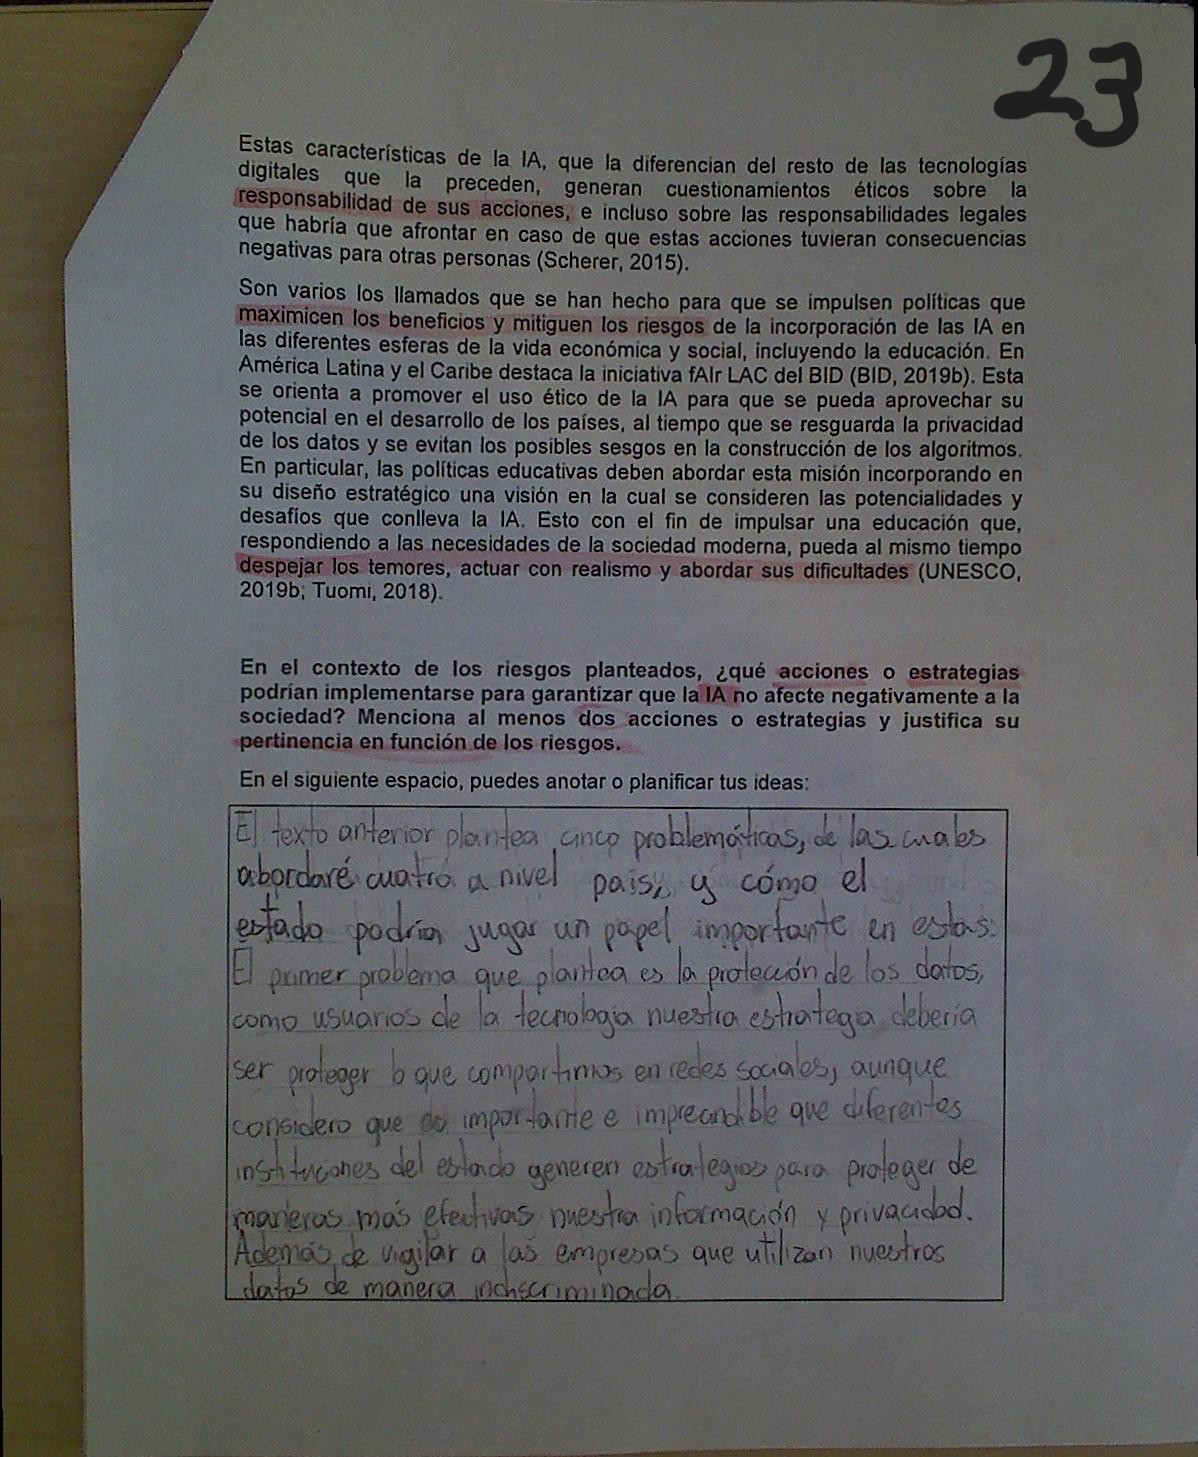 23
Estas características de la IA, que la diferencian del resto de las tecnologías
digitales que la preceden, generan cuestionamientos éticos sobre la
responsabilidad de sus acciones, e incluso sobre las responsabilidades legales
que habría que afrontar en caso de que estas acciones tuvieran consecuencias
negativas para otras personas (Scherer, 2015).
Son varios los llamados que se han hecho para que se impulsen políticas que
maximicen los beneficios y mitiguen los riesgos de la incorporación de las IA en
las diferentes esferas de la vida económica y social, incluyendo la educación. En
América Latina y el Caribe destaca la iniciativa fAIr LAC del BID (BID, 2019b). Esta
se orienta a promover el uso ético de la IA para que se pueda aprovechar su
potencial en el desarrollo de los países, al tiempo que se resguarda la privacidad
de los datos y se evitan los posibles sesgos en la construcción de los algoritmos.
En particular, las políticas educativas deben abordar esta misión incorporando en
su diseño estratégico una visión en la cual se consideren las potencialidades y
desafíos que conlleva la IA. Esto con el fin de impulsar una educación que,
respondiendo a las necesidades de la sociedad moderna, pueda al mismo tiempo
despejar los temores, actuar con realismo y abordar sus dificultades (UNESCO,
2019b; Tuomi, 2018).
En el contexto de los riesgos planteados, ¿qué acciones o estrategias
podrían implementarse para garantizar que la IA no afecte negativamente a la
sociedad? Menciona al menos dos acciones o estrategias y justifica su
pertinencia en función de los riesgos.
En el siguiente espacio, puedes anotar o planificar tus ideas:
El texto anterior plantea cinco problemáticas, de las cuales
abordaré cuatro a nivel país, y cómo el
estado podría jugar un papel importante en estas:
El primer problema que plantea es la protección de los datos,
como usuarios de la tecnología nuestra estrategia debería
ser proteger lo que compartimos en redes sociales, aunque
considero que es importante e imprecindible que diferentes
instituciones del estado generen estrategias para proteger de
maneras más efectivas nuestra información y privacidad.
Además de vigilar a las empresas que utilizan nuestros
datos de manera indiscriminada.